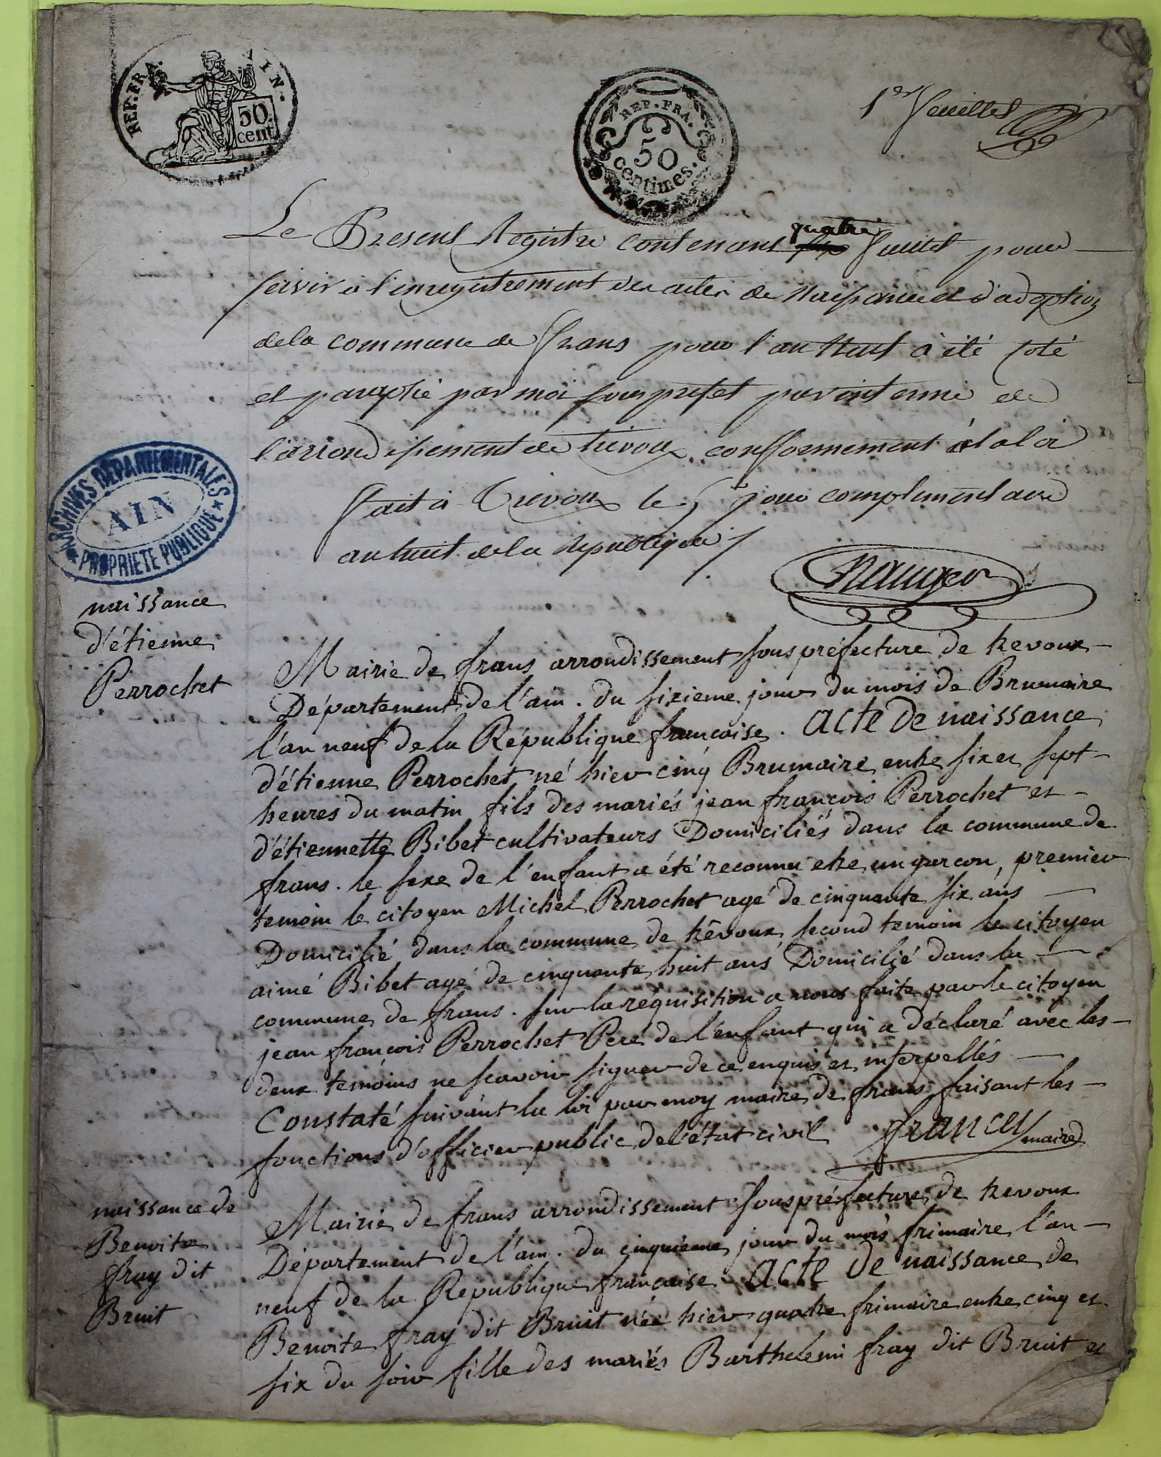 REP. FRA. AIN.
50 cent.
REP. FRA.
50
centimes.
1er feuillet
Le Present Registre contenant quatre feuillet pour
servir a l'enregistrement des actes de Naissance et d'adoption
de la commune de frans pour l'an Neuf à été coté
et paraphé par moi sous prefet par interim de
l'arrondissement de Trevoux conformement à la loi
fait à Trevoux le 5e jour complementaire
an huit de la Republique
ARCHIVES DÉPARTEMENTALES
AIN
PROPRIÉTÉ PUBLIQUE
naissance
d'étienne
Perrochet
Mairie de frans arrondissement sous préfecture de trevoux
Département de l'ain . du sixieme jour du mois de Brumaire
l'an neuf de la République francoise . acte de naissance
d'étienne Perrochet né hier cinq Brumaire entre six et sept
heures du matin fils des mariés jean françois Perrochet et
d'étiennette Bibet cultivateurs Domiciliés dans la commune de
frans . le sexe de l'enfant a été reconnu etre un garcon, premier
temoin le citoyen Michel Perrochet agé de cinquante six ans
Domicilié dans la commune de trévoux second temoin le citoyen
aimé Bibet agé de cinquante huit ans Domicilié dans la
commune de frans . sur la requisition a nous faite par le citoyen
jean francois Perrochet Pere de l'enfant qui a déclaré avec les
deux temoins ne scavoir signer de ce enquis et interpellés
Constaté suivant la loi par moy maire de frans faisant les
fonctions d'officier public de l'état civil francey maire
naissance de
Benoite
fray dit
Bruit
Mairie de frans arrondissement sous préfecture de trevoux
Département de l'ain . du cinquieme jour du mois frimaire l'an
neuf de la République francoise acte de naissance de
Benoite fray dit Bruit née hier quatre frimaire entre cinq et
six du soir fille des mariés Barthelemi fray dit Bruit et